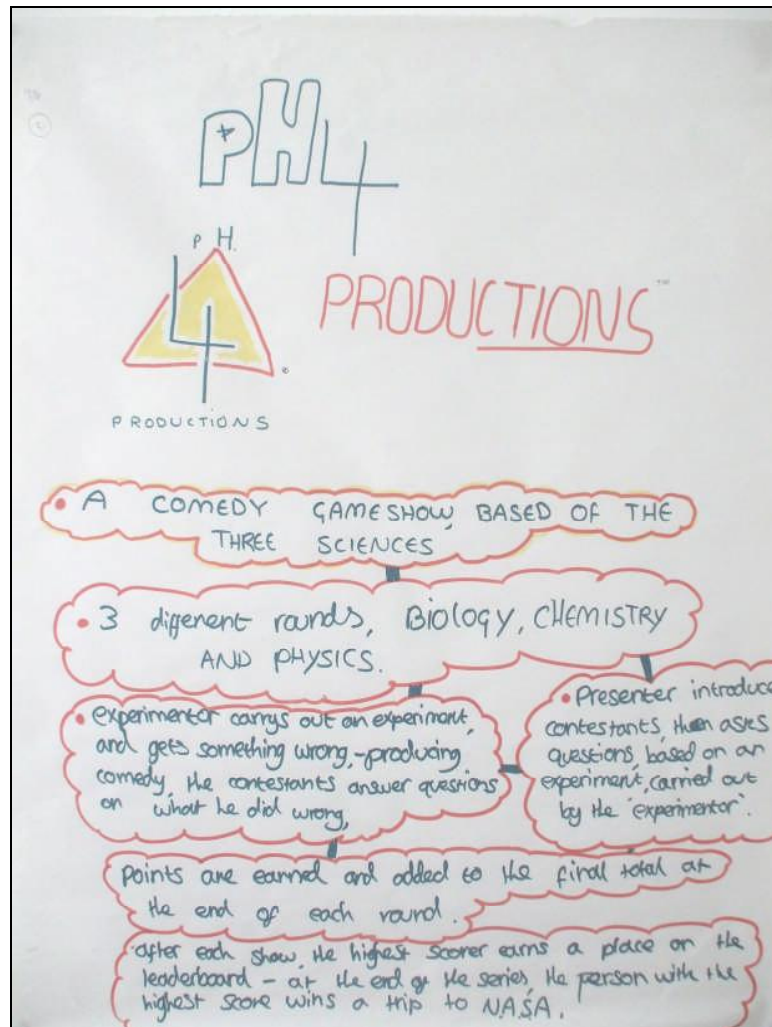 PH4
PH
4
PRODUCTIONS
PRODUCTIONS™
• A COMEDY GAMESHOW, BASED OF THE
THREE SCIENCES
• 3 different rounds, BIOLOGY, CHEMISTRY
AND PHYSICS.
• experimentor carrys out an experiment,
and gets something wrong,-producing
comedy, the contestants answer questions
on what he did wrong,
• Presenter introduce
contestants, then asks
questions, based on an
experiment, carried out
by the 'experimentor'.
points are earned and added to the final total at
the end of each round.
after each show, the highest scorer earns a place on the
leaderboard - at the end of the series, the person with the
highest score wins a trip to N.A.S.A.